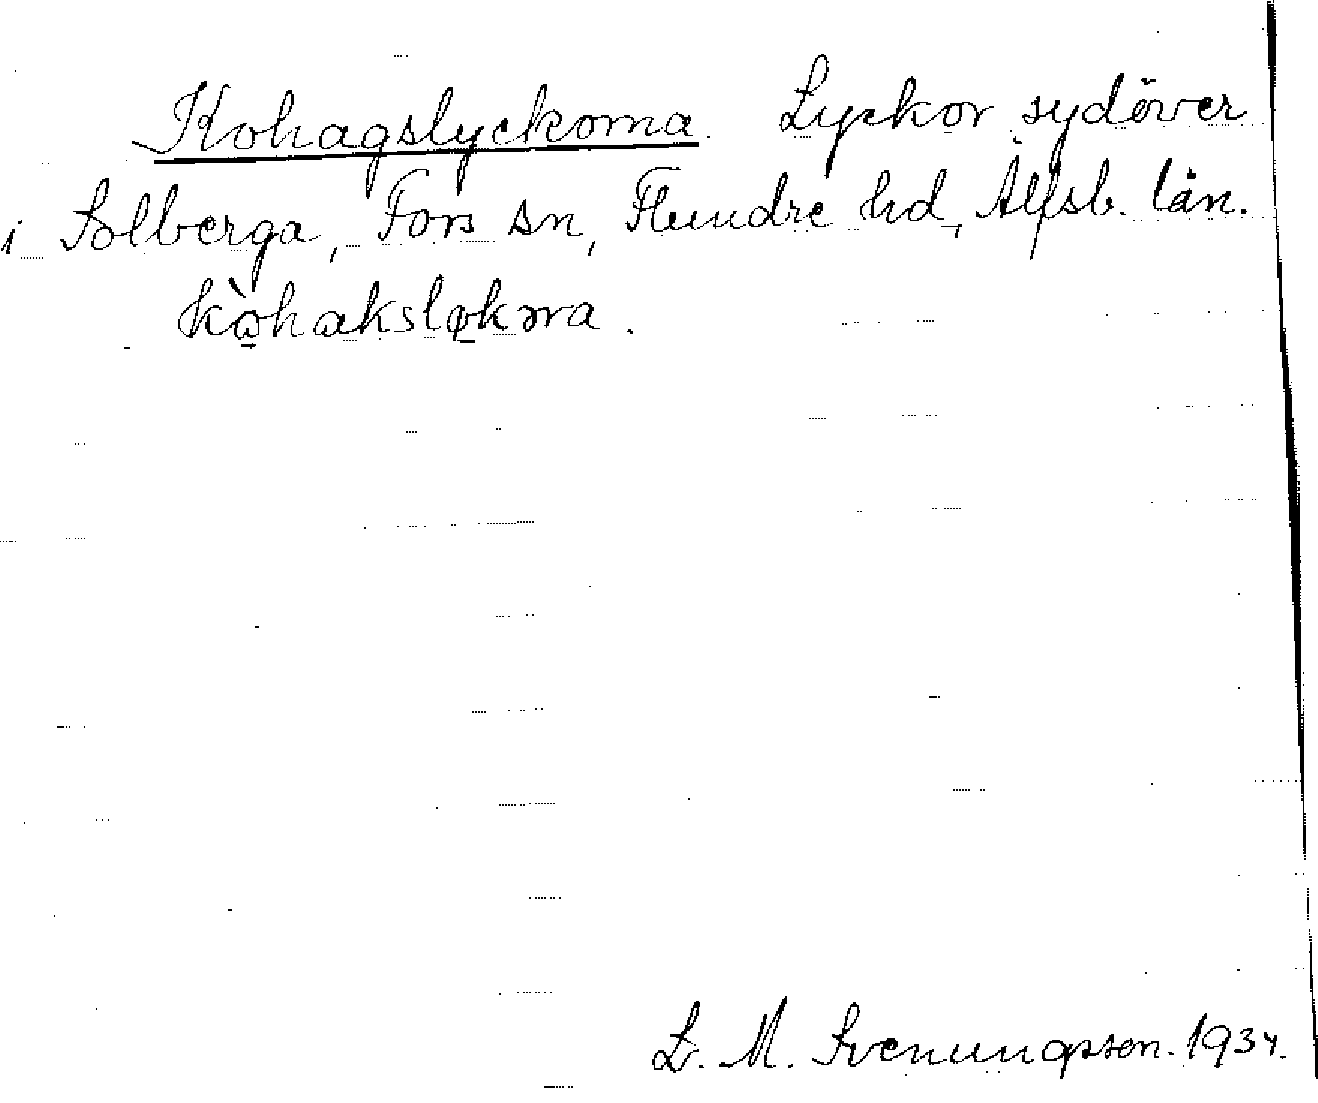 Kohagslyckorna. Lyckor sydöver
i Solberga, Fors sn, Flundre hd, Älfsb. län.
kò̱haksløkɔrna.
L. M. Svenungsson. 1934.